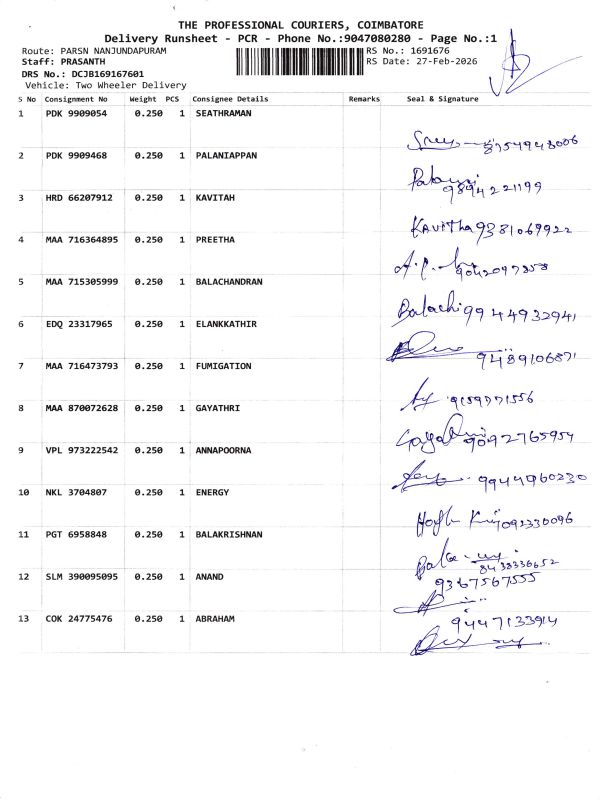 THE PROFESSIONAL COURIERS, COIMBATORE
Delivery Runsheet - PCR - Phone No.:9047080280 - Page No.:1
Route: PARSN NANJUNDAPURAM RS No.: 1691676
Staff: PRASANTH RS Date: 27-Feb-2026
DRS No.: DCJB169167601
Vehicle: Two Wheeler Delivery
S No Consignment No Weight PCS Consignee Details Remarks Seal & Signature
1 PDK 9909054 0.250 1 SEATHRAMAN
8754948006
2 PDK 9909468 0.250 1 PALANIAPPAN
9894221199
3 HRD 66207912 0.250 1 KAVITAH
KAVITHA 9381069922
4 MAA 716364895 0.250 1 PREETHA
9042097858
5 MAA 715305999 0.250 1 BALACHANDRAN
Balachi 9944932941
6 EDQ 23317965 0.250 1 ELANKKATHIR
9489106871
7 MAA 716473793 0.250 1 FUMIGATION
9159771556
8 MAA 870072628 0.250 1 GAYATHRI
9092765954
9 VPL 973222542 0.250 1 ANNAPOORNA
9944960230
10 NKL 3704807 0.250 1 ENERGY
11 PGT 6958848 0.250 1 BALAKRISHNAN
8438336652
12 SLM 390095095 0.250 1 ANAND
9367567555
13 COK 24775476 0.250 1 ABRAHAM
9447133914